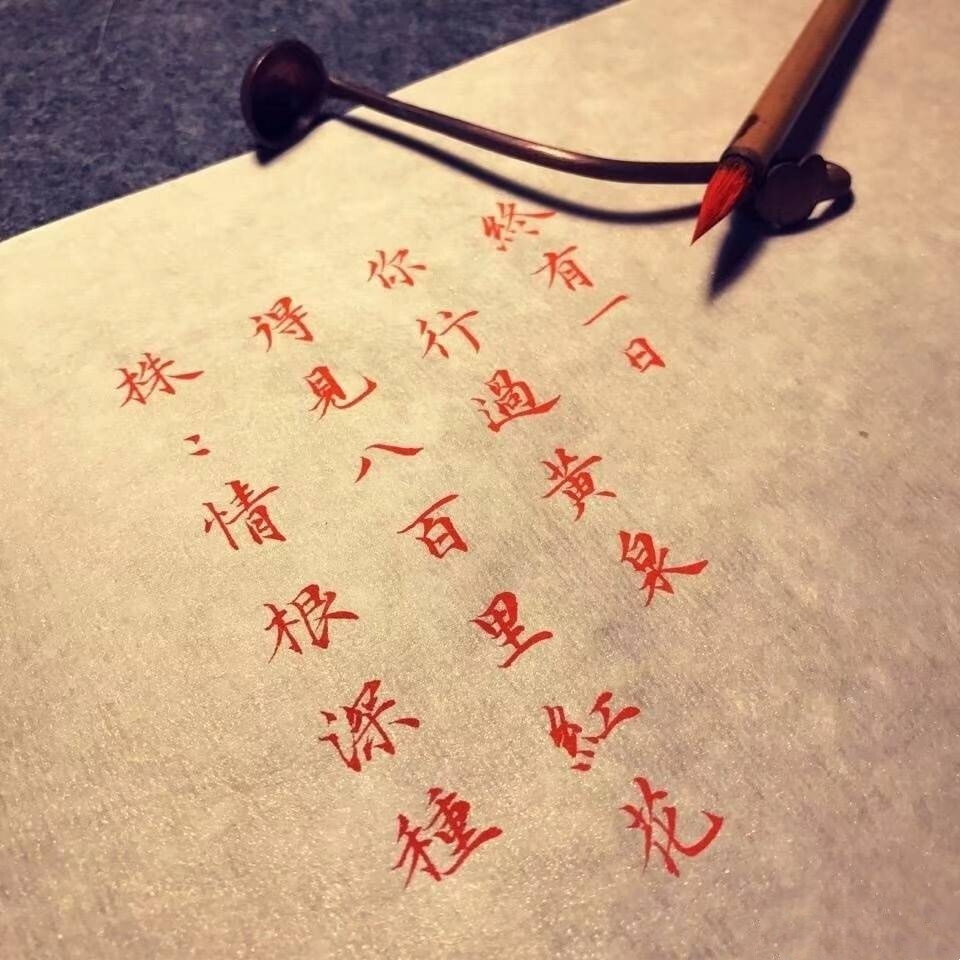 終有一日
你行過黃泉
得見八百里紅花
株〻情根深種